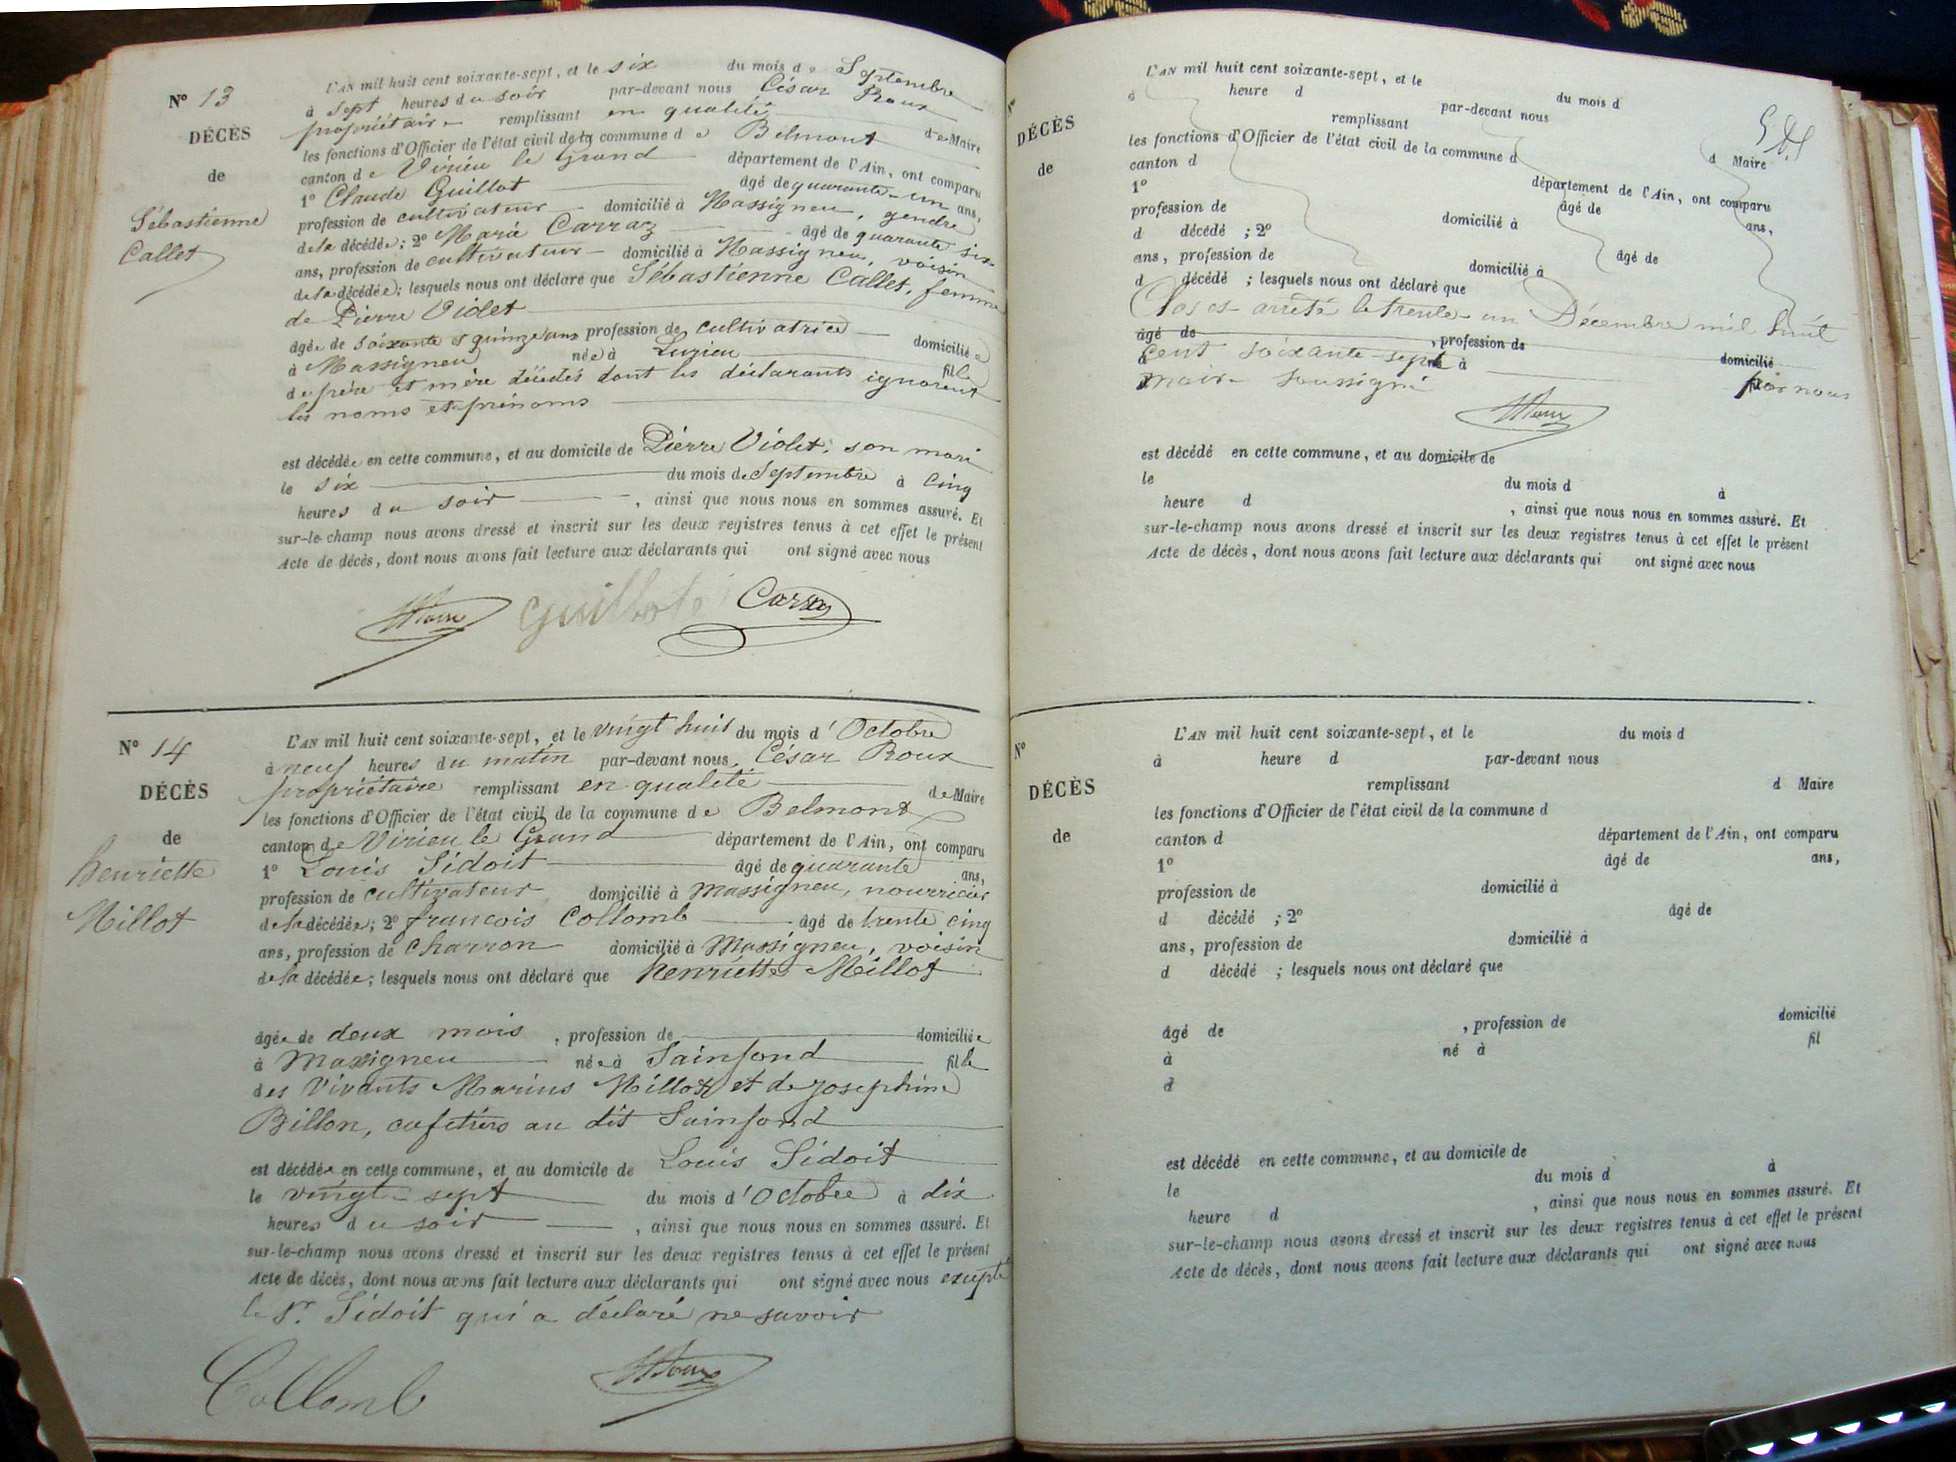 N° 13
DÉCÈS
de
Sébastienne
Callet
L'AN mil huit cent soixante-sept, et le six du mois de Septembre
à sept heures du soir par-devant nous César Roux
propriétaire remplissant en qualité de Maire
les fonctions d'Officier de l'état civil de la commune de Belmont
canton de Virieu le Grand département de l'Ain, ont comparu
1° Claude Guillot âgé de quarante-un ans,
profession de cultivateur domicilié à Massigneu, gendre
de la décédée; 2° Marie Carraz âgé de quarante six
ans, profession de cultivateur domicilié à Massigneu, voisin
de la décédée; lesquels nous ont déclaré que Sébastienne Callet, femme
de Pierre Violet
âgée de soixante et quinze ans profession de cultivatrice domiciliée
à Massigneu née à Luzieu fille
de père et mère décédés dont les déclarants ignorent
les noms et prénoms
est décédée en cette commune, et au domicile de Pierre Violet, son mari
le six du mois de Septembre à cinq
heures du soir , ainsi que nous nous en sommes assuré. Et
sur-le-champ nous avons dressé et inscrit sur les deux registres tenus à cet effet le présent
Acte de décès, dont nous avons fait lecture aux déclarants qui ont signé avec nous
Roux Guillot Carraz
N° 14
DÉCÈS
de
henriette
Millot
L'AN mil huit cent soixante-sept, et le vingt huit du mois d'Octobre
à neuf heures du matin par-devant nous César Roux
propriétaire remplissant en qualité de Maire
les fonctions d'Officier de l'état civil de la commune de Belmont
canton de Virieu le Grand département de l'Ain, ont comparu
1° Louis Sidoit âgé de quarante ans,
profession de cultivateur domicilié à Massigneu, nourricier
de la décédée; 2° françois Collomb âgé de trente cinq
ans, profession de charron domicilié à Massigneu, voisin
de la décédée; lesquels nous ont déclaré que henriette Millot
âgée de deux mois , profession de domiciliée
à Massigneu née à Sainfond fille
des vivants Marius Millot et de josephine
Billon, cafetiers au dit Sainfond
est décédée en cette commune, et au domicile de Louis Sidoit
le vingt sept du mois d'Octobre à dix
heures du soir , ainsi que nous nous en sommes assuré. Et
sur-le-champ nous avons dressé et inscrit sur les deux registres tenus à cet effet le présent
Acte de décès, dont nous avons fait lecture aux déclarants qui ont signé avec nous excepté
le Sr. Sidoit qui a déclaré ne savoir
Collomb Roux
N°
DÉCÈS
de
L'AN mil huit cent soixante-sept, et le du mois d
à heure d par-devant nous
remplissant d Maire
les fonctions d'Officier de l'état civil de la commune d
canton d département de l'Ain, ont comparu
1° âgé de ans,
profession de domicilié à
d décédé ; 2° âgé de
ans, profession de domicilié à
d décédé ; lesquels nous ont déclaré que
Clos et arrêté le trente un Décembre mil huit
âgé de , profession de domicilié
cent soixante-sept à par nous
maire soussigné
Roux
est décédé en cette commune, et au domicile de
le du mois d à
heure d , ainsi que nous nous en sommes assuré. Et
sur-le-champ nous avons dressé et inscrit sur les deux registres tenus à cet effet le présent
Acte de décès, dont nous avons fait lecture aux déclarants qui ont signé avec nous
N°
DÉCÈS
de
L'AN mil huit cent soixante-sept, et le du mois d
à heure d par-devant nous
remplissant d Maire
les fonctions d'Officier de l'état civil de la commune d
canton d département de l'Ain, ont comparu
1° âgé de ans,
profession de domicilié à
d décédé ; 2° âgé de
ans, profession de domicilié à
d décédé ; lesquels nous ont déclaré que
âgé de , profession de domicilié
à né à fil
d
est décédé en cette commune, et au domicile de
le du mois d à
heure d , ainsi que nous nous en sommes assuré. Et
sur-le-champ nous avons dressé et inscrit sur les deux registres tenus à cet effet le présent
Acte de décès, dont nous avons fait lecture aux déclarants qui ont signé avec nous